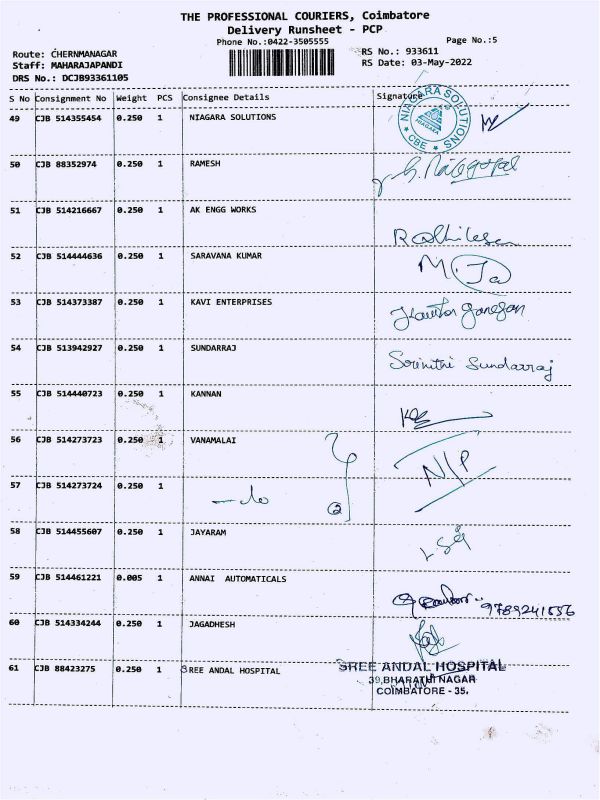 THE PROFESSIONAL COURIERS, Coimbatore
Delivery Runsheet - PCP
Phone No.:0422-3505555
Page No.:5
Route: CHERNMANAGAR
RS No.: 933611
Staff: MAHARAJAPANDI
RS Date: 03-May-2022
DRS No.: DCJB93361105
S No Consignment No Weight PCS Consignee Details Signature
49 CJB 514355454 0.250 1 NIAGARA SOLUTIONS
NIAGARA SOLUTIONS
NIAGARA
* CBE *
50 CJB 88352974 0.250 1 RAMESH
51 CJB 514216667 0.250 1 AK ENGG WORKS
52 CJB 514444636 0.250 1 SARAVANA KUMAR
53 CJB 514373387 0.250 1 KAVI ENTERPRISES
54 CJB 513942927 0.250 1 SUNDARRAJ Sundarraj
55 CJB 514440723 0.250 1 KANNAN
56 CJB 514273723 0.250 1 VANAMALAI N/P
57 CJB 514273724 0.250 1
58 CJB 514455607 0.250 1 JAYARAM
59 CJB 514461221 0.005 1 ANNAI AUTOMATICALS
60 CJB 514334244 0.250 1 JAGADHESH
61 CJB 88423275 0.250 1 SREE ANDAL HOSPITAL
SREE ANDAL HOSPITAL
39,BHARATHI NAGAR
COIMBATORE - 35.